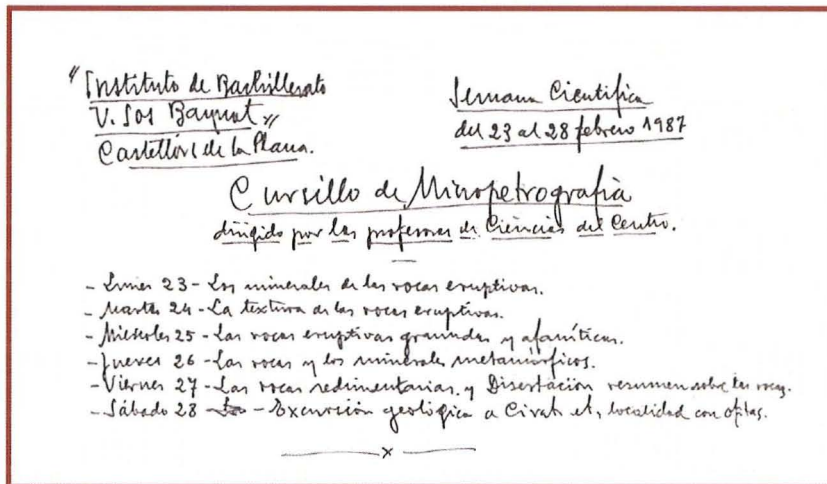 "Instituto de Bachillerato
V. Sos Baynat"
Castellón de la Plana.
Semana Científica
del 23 al 28 febrero 1987
Cursillo de Micropetrografía
dirigido por los profesores de Ciencias del Centro.
- Lunes 23 - Los minerales de las rocas eruptivas.
- Martes 24 - La textura de las rocas eruptivas.
- Miércoles 25 - Las rocas eruptivas granudas y afaníticas.
- Jueves 26 - Las rocas y los minerales metamórficos.
- Viernes 27 - Las rocas sedimentarias, y Disertación resumen sobre las rocas.
- Sábado 28 - Excursión geológica a Cirat, localidad con ofitas.